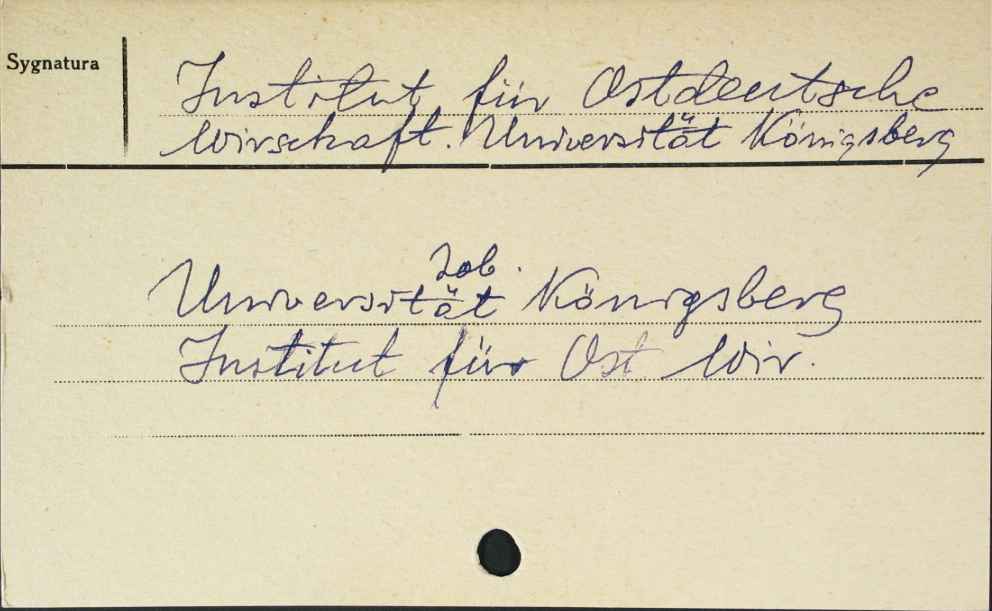 Sygnatura
Institut für Ostdeutsche
Wirschaft. Universität Königsberg
zob.
Universität Königsberg
Institut für Ost Wir.